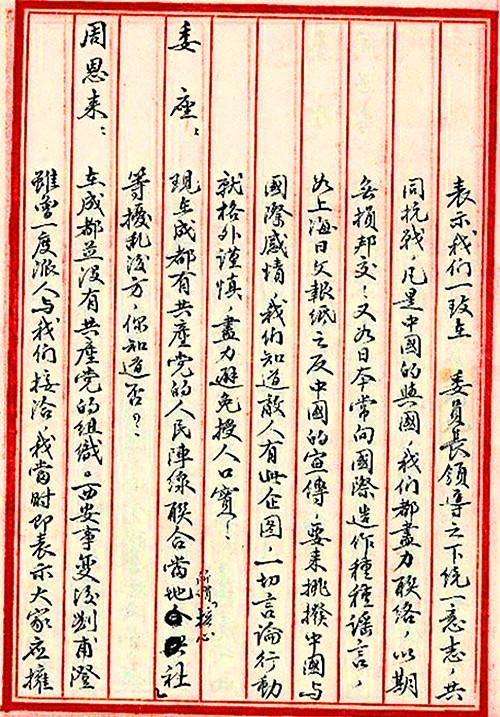 表示我们一致在　委員長領導之下統一意志，共
同抗戰，凡是中國的與國，我们都盡力联络，以期
無損邦交！又如日本常向國際造作種種謠言，
如上海日文報紙之反中國的宣傳，要来挑撥中國与
國際感情，我们知道敵人有此企图，一切言論行動
就格外謹慎，盡力避免授人口實！
委座：現在成都有共產党的人民陣線联合當地所謂「核心社」
等擾乱後方，你知道否？
周恩来：在成都並没有共產党的組織。西安事变後刘甫澄
雖曾一度派人与我们接洽，我當时即表示大家应擁